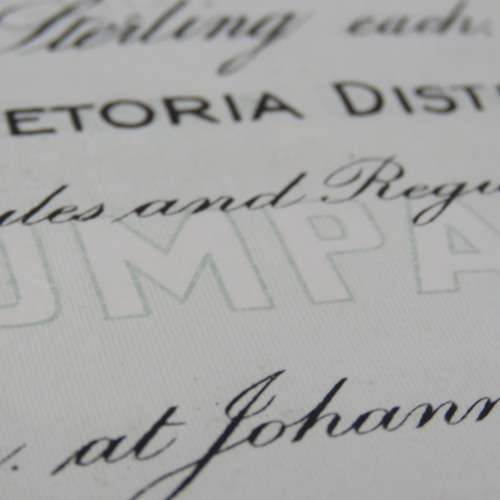 Sterling each.
ETORIA DIST
ules and Regu
OMPA
. at Johann